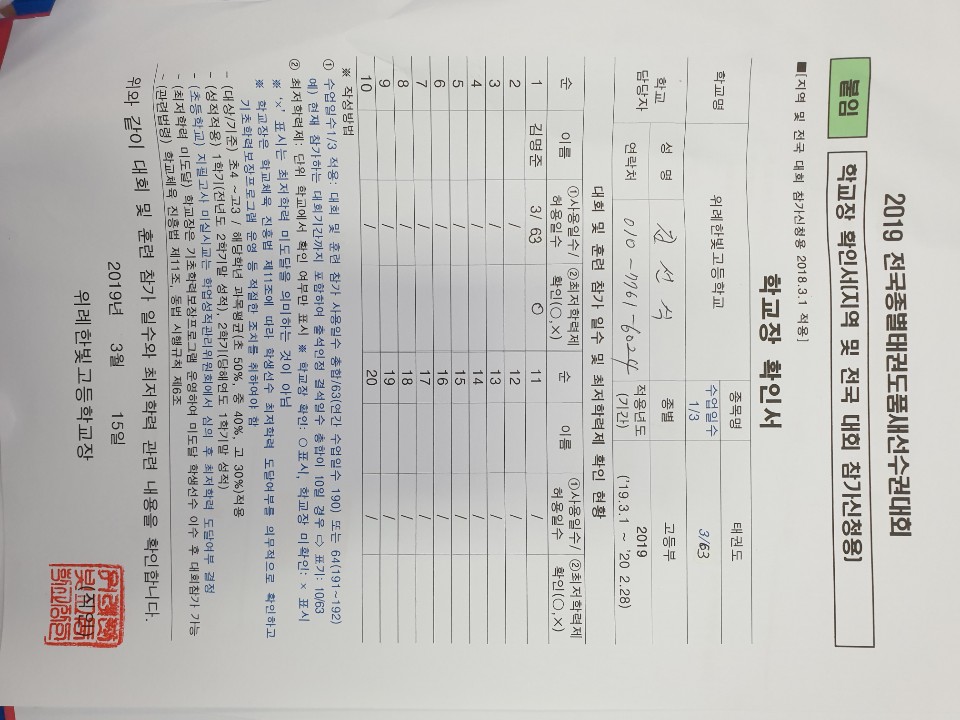 2019 전국종별태권도품새선수권대회
붙임 학교장 확인서[지역 및 전국 대회 참가신청용]
■[지역 및 전국 대회 참가신청용 2018.3.1 적용]
학교장 확인서
학교명 위례한빛고등학교 종목명 태권도
수업일수 1/3 3/63
학교 담당자 성 명 전선식 종별 고등부
연락처 010-7761-6024 적용년도 (기간) 2019 ('19.3.1 ~ '20 2.28)
대회 및 훈련 참가 일수 및 최저학력제 확인 현황
순 이름 ①사용일수/허용일수 ②최저학력제 확인(○,×) 순 이름 ①사용일수/허용일수 ②최저학력제 확인(○,×)
1 김명준 3/ 63 ○ 11 /
2 / 12 /
3 / 13 /
4 / 14 /
5 / 15 /
6 / 16 /
7 / 17 /
8 / 18 /
9 / 19 /
10 / 20 /
※ 작성방법
① 수업일수1/3 적용: 대회 및 훈련 참가 사용일수 총합/63(연간 수업일수 190) 또는 64(191~192)
예) 현재 참가하는 대회기간까지 포함하여 출석인정 결석일수 총합이 10일 경우 ⇨ 표기: 10/63
② 최저학력제: 단위 학교에서 확인 여부만 표시 ※ 학교장 확인: ○표시, 학교장 미확인: × 표시
※ '×' 표시는 최저학력 미도달을 의미하는 것이 아님
※ 학교장은 학교체육 진흥법 제11조에 따라 학생선수 최저학력 도달여부를 의무적으로 확인하고
기초학력보장프로그램 운영 등 적절한 조치를 취하여야 함
- (대상/기준) 초4 ~고3 / 해당학년 과목평균(초 50%, 중 40%, 고 30%)적용
- (성적적용) 1학기(전년도 2학기말 성적), 2학기(당해연도 1학기말 성적)
- (초등학교) 지필고사 미실시교는 학업성적관리위원회에서 심의 후 최저학력 도달여부 결정
- (최저학력 미도달) 학교장은 기초학력보장프로그램 운영하여 미도달 학생선수 이수 후 대회참가 가능
- (관련법령) 학교체육 진흥법 제11조, 동법 시행규칙 제6조
위와 같이 대회 및 훈련 참가 일수와 최저학력 관련 내용을 확인합니다.
2019년 3월 15일
위례한빛고등학교장 (직인)